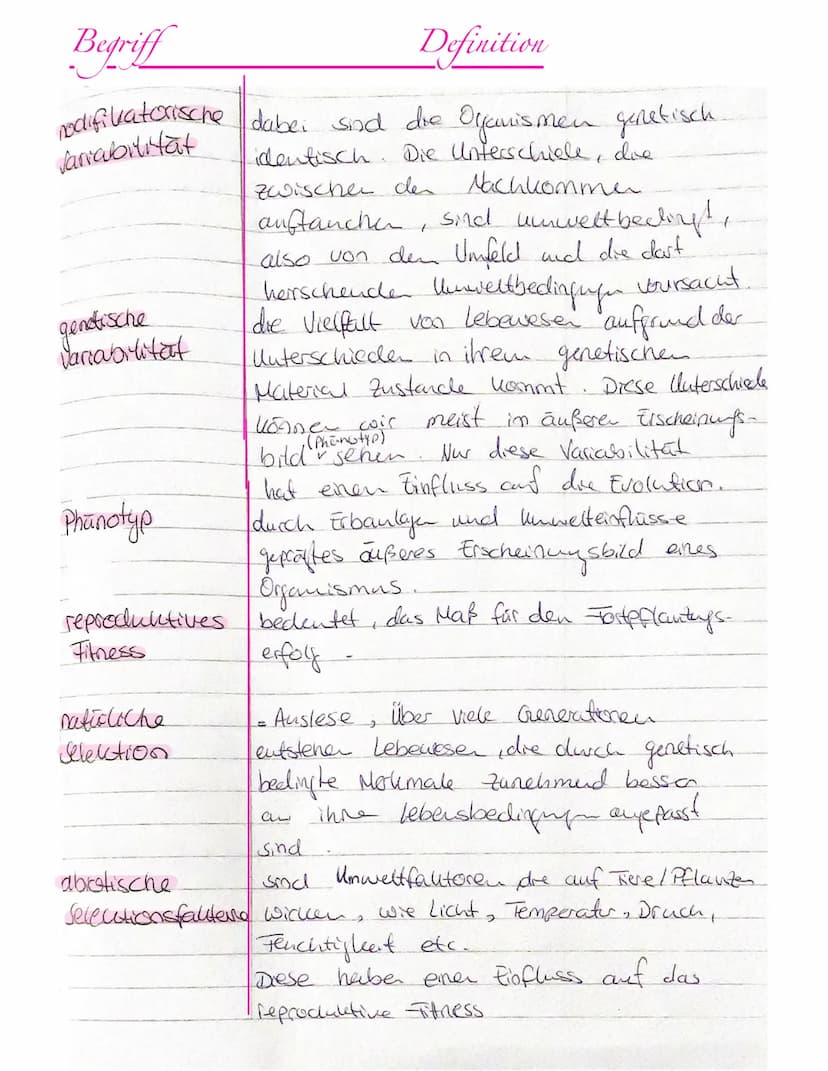 Begriff Definition
modifikatorische
Variabilität
dabei sind die Organismen genetisch
identisch. Die Unterschiele, die
zwischen den Nachkommen
auftauchen, sind umweltbedingt,
also von dem Umfeld und die dort
herrschenden Umweltbedingungen verursacht.
genetische
Variabilität
die Vielfalt von Lebewesen aufgrund der
Unterschieden in ihrem genetischen
Material zustande kommt. Diese Unterschiede
können wir meist im äußeren Erscheinungs-
(Phänotyp)
bild sehen. Nur diese Variabilität
hat einen Einfluss auf die Evolution.
Phänotyp
durch Erbanlagen und Umwelteinflüsse
geprägtes äußeres Erscheinungsbild eines
Organismus.
reproduktives
Fitness
bedeutet, das Maß für den Fortpflanzungs-
erfolg.
natürliche
Selektion
= Auslese, Über viele Generationen
entstehen Lebewesen, die durch genetisch
bedingte Merkmale zunehmend besser
an ihre Lebensbedingungen angepasst
sind.
abiotische
Selektionsfaktoren
sind Umweltfaktoren die auf Tiere/Pflanzen
wirken, wie Licht, Temperatur, Druck,
Feuchtigkeit etc.
Diese haben einen Einfluss auf das
reproduktive Fitness